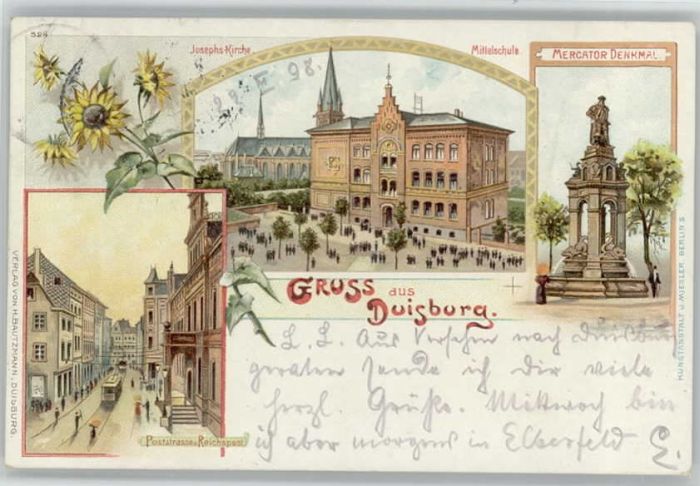 528
Josephs-Kirche.
Mittelschule
MERCATOR DENKMAL
98.
GRUSS aus
Duisburg.
L. L. Aus Versehen nach Duisburg
geraten sende ich dir viele
herzl. Grüße. Mittwoch bin
ich aber morgens in Elberfeld E.
Poststrasse u. Reichspost
VERLAG VON H. BAUTZMANN, DUISBURG.
KUNSTANSTALT J. MIESLER, BERLIN S.